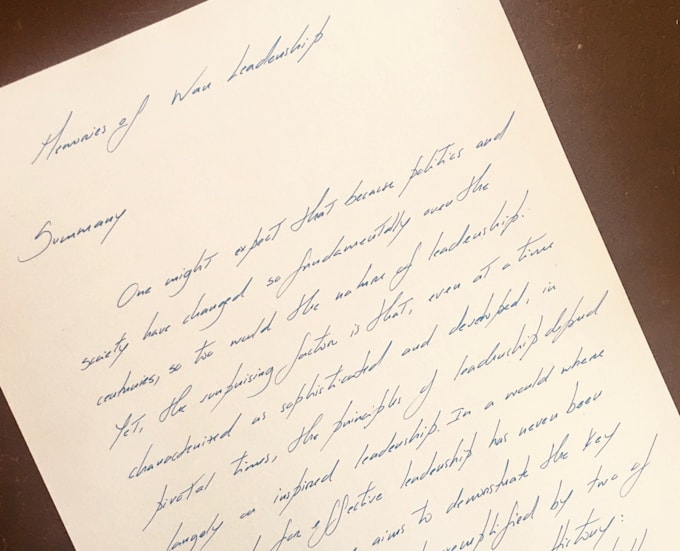 Memories of War Leadership
Summary
One might expect that because politics and
society have changed so fundamentally over the
centuries, so too would the nature of leadership.
Yet, the surprising factor is that, even at a time
characterized as sophisticated and developed, in
pivotal times, the principles of leadership depend
largely on inspired leadership. In a world where
for effective leadership has never been
aims to demonstrate the key
exemplified by two of
history: